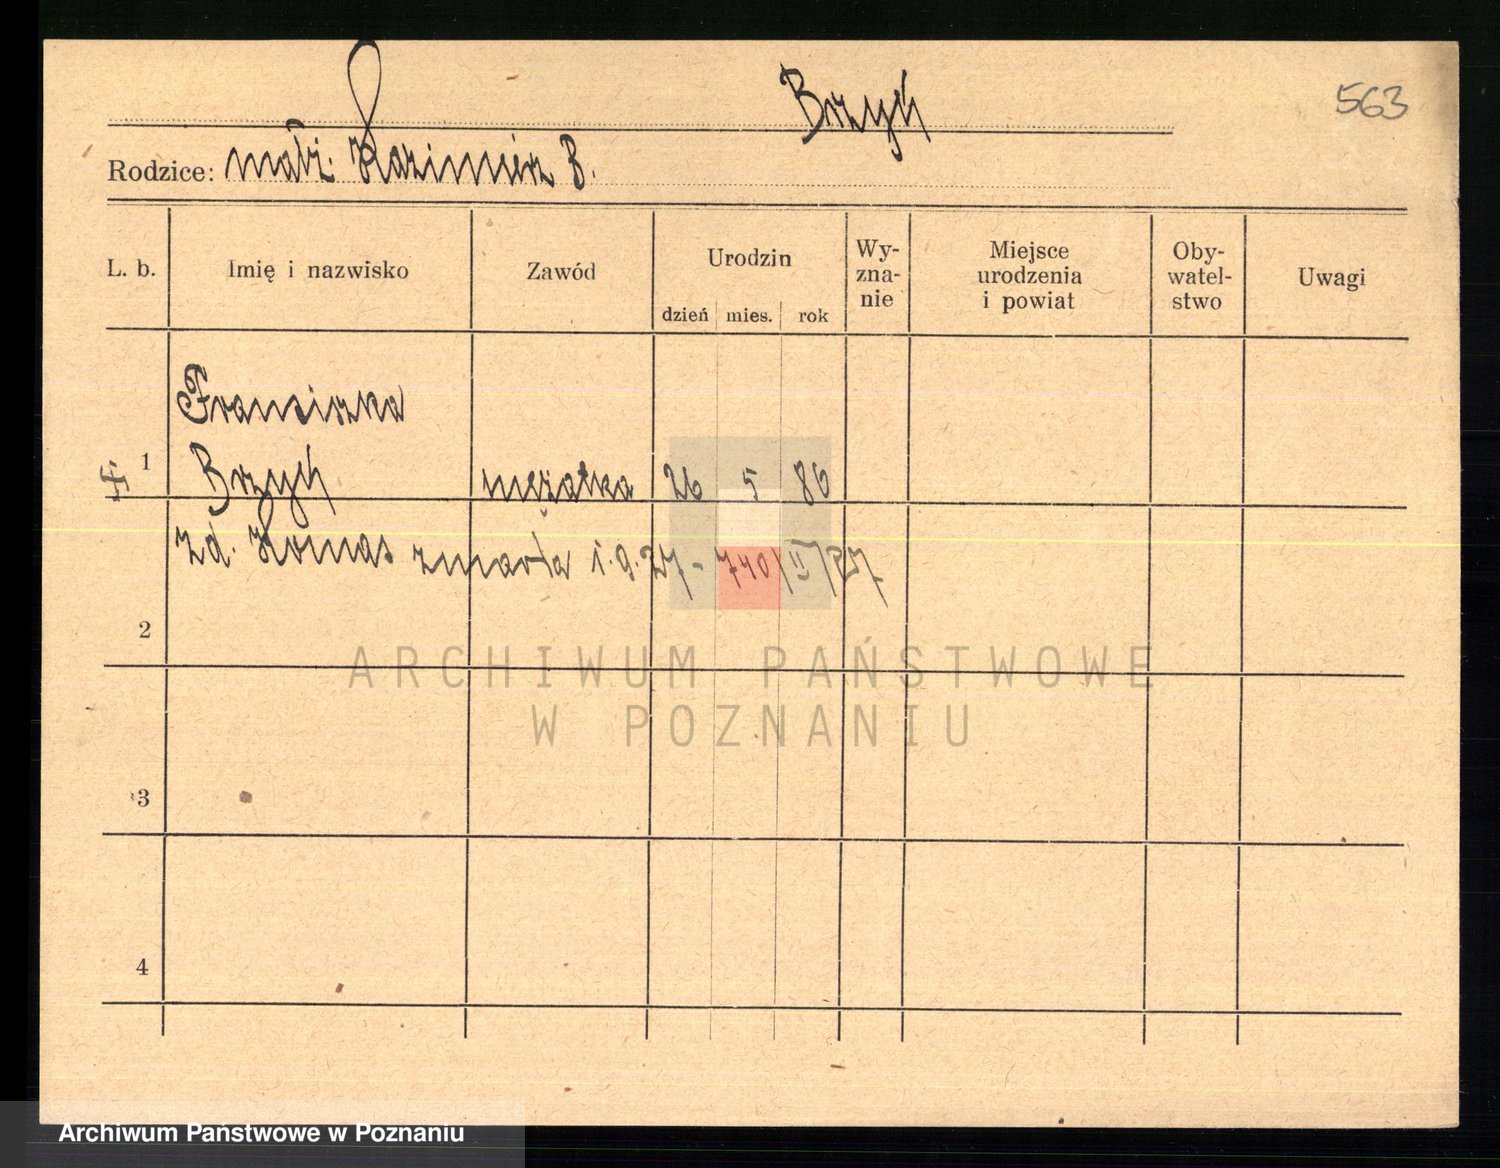 Brzyś
563
Rodzice: małż. Kazimierz B.
L. b. Imię i nazwisko Zawód Urodzin dzień mies. rok Wy-zna-nie Miejsce urodzenia i powiat Oby-watel-stwo Uwagi
Franciszka
1 Brzyś mężatka 26 5 86
zd. Komas zmarła 1.9.27 - 740/II/27
2
ARCHIWUM PAŃSTWOWE
W POZNANIU
3
4
Archiwum Państwowe w Poznaniu